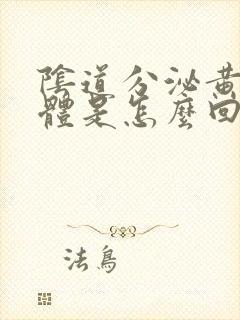 陰道分泌黃
體是怎麼回
法鳥